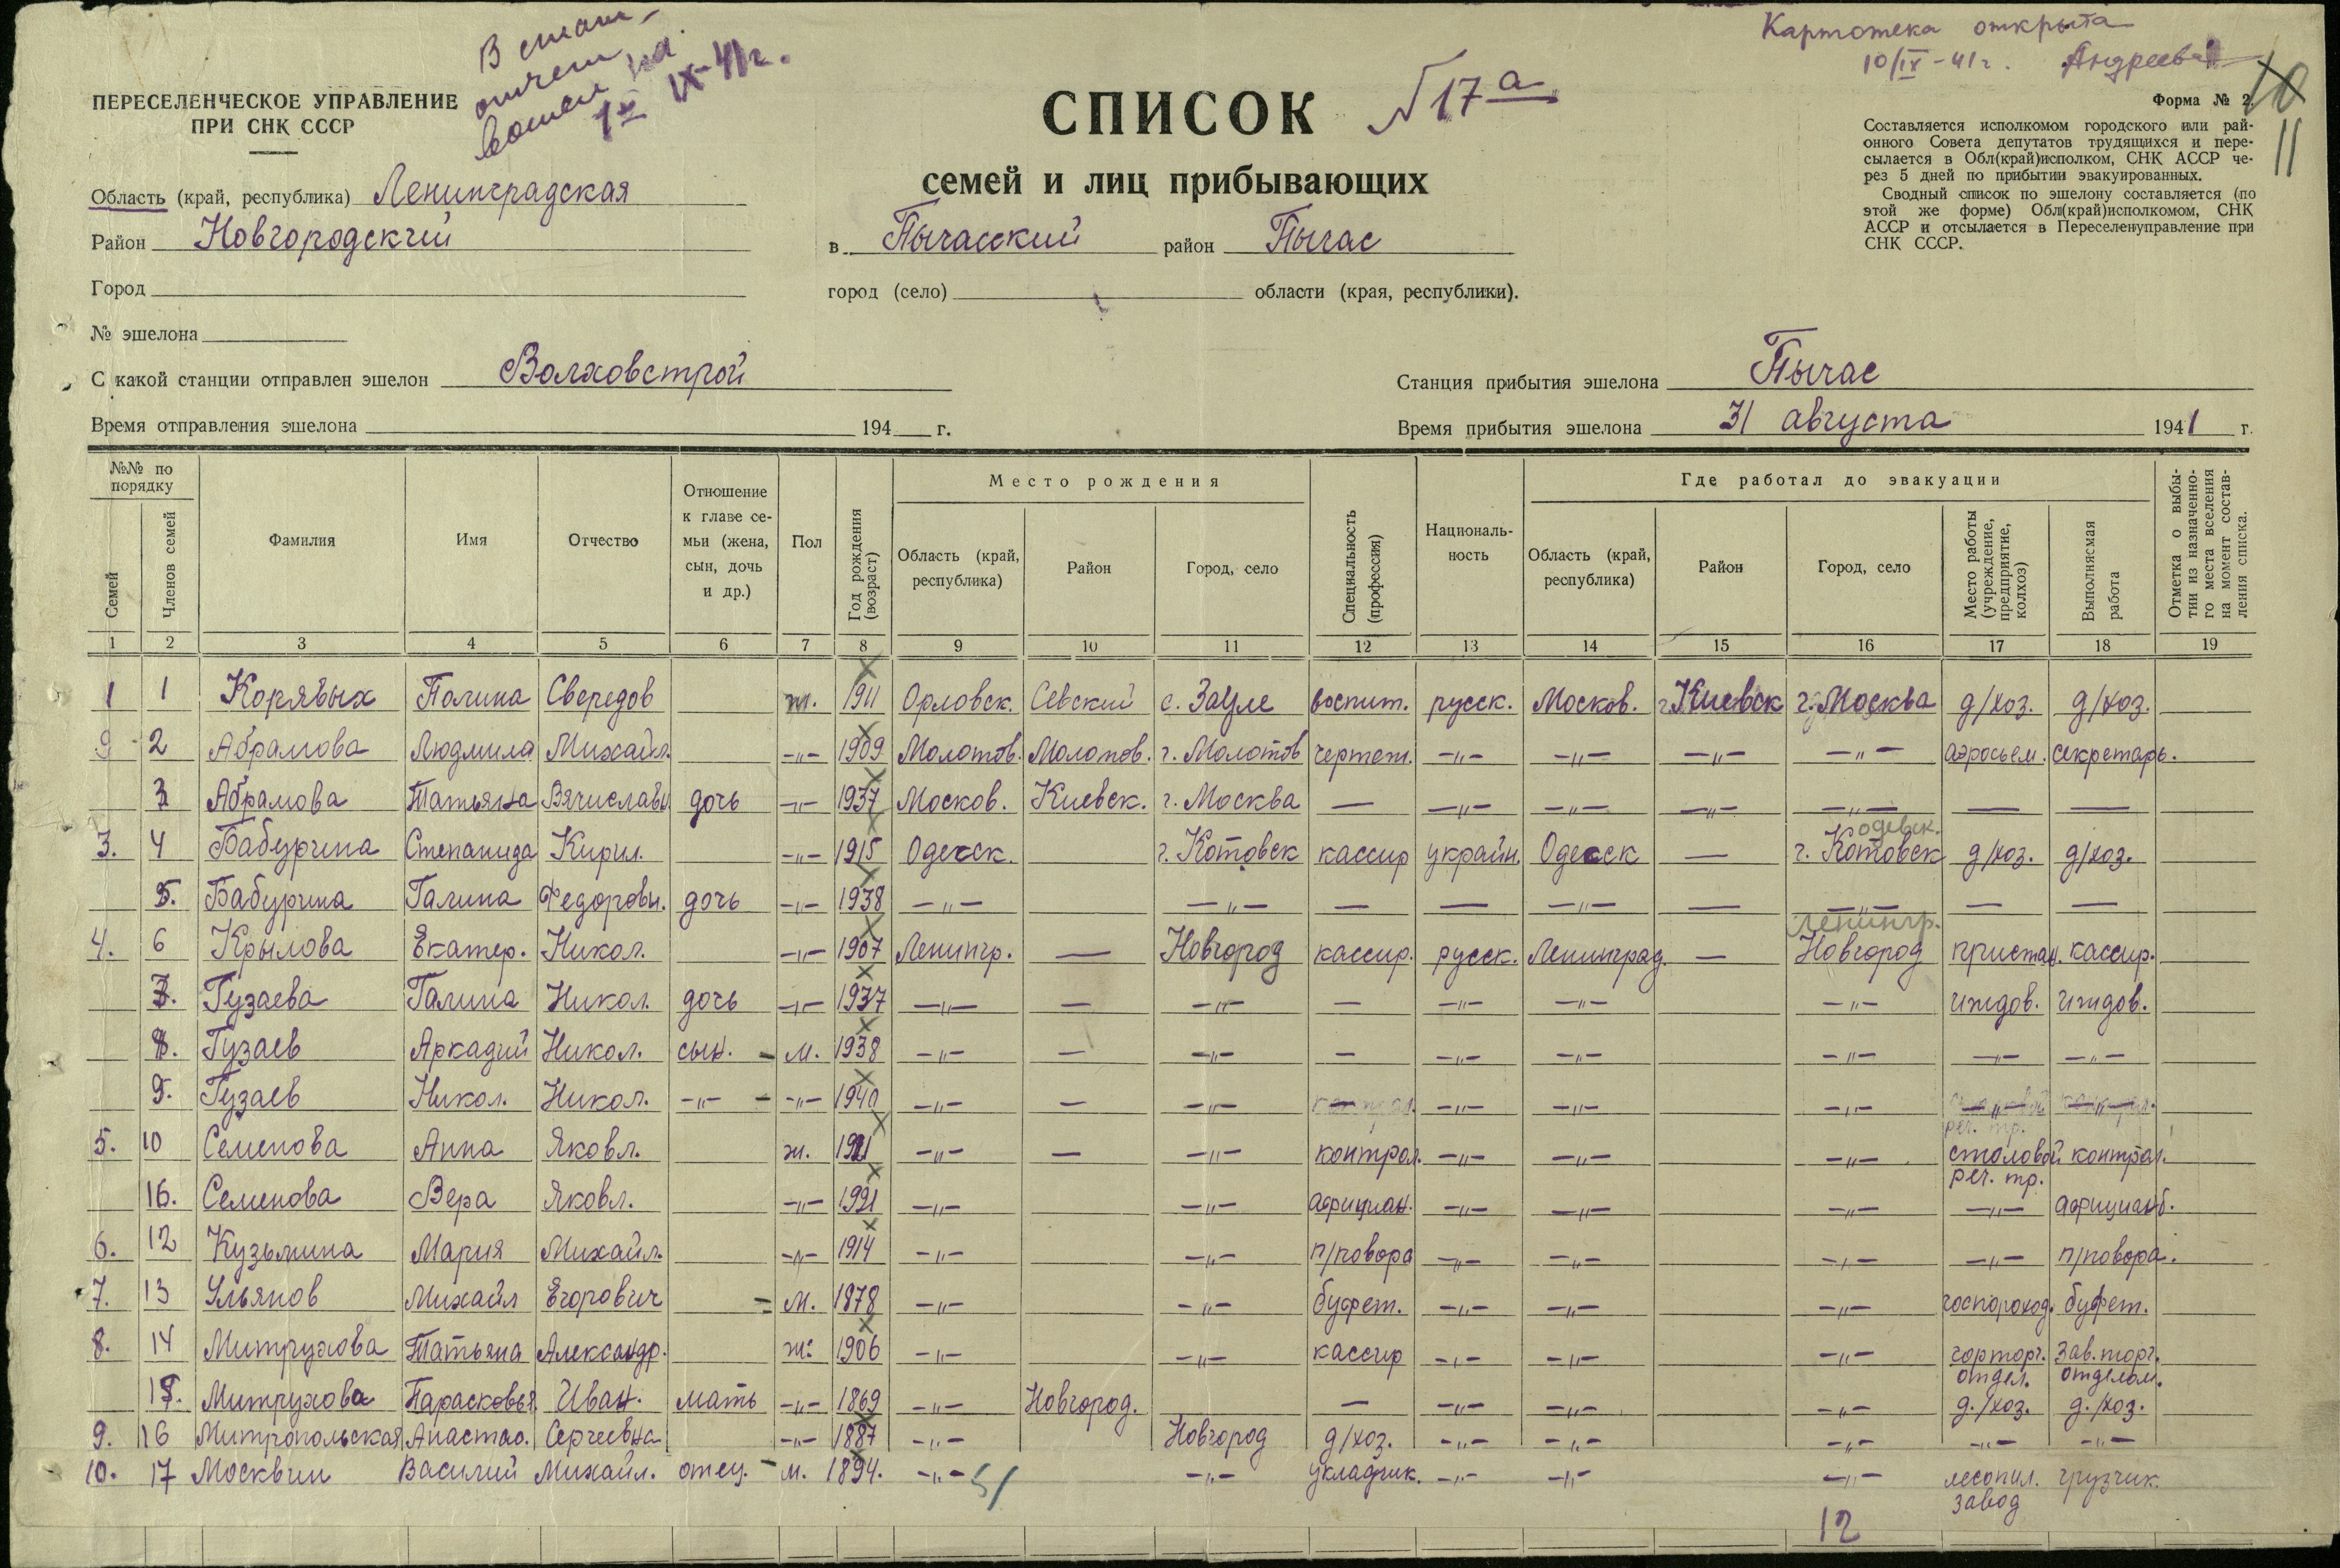 В стат-
отчет
вошел на
1го IX-41г.
Картотека открыта
10/IX-41г. Андреева
ПЕРЕСЕЛЕНЧЕСКОЕ УПРАВЛЕНИЕ
ПРИ СНК СССР
СПИСОК №17а
семей и лиц прибывающих
Форма № 2.
10
11
Составляется исполкомом городского или рай-
онного Совета депутатов трудящихся и пере-
сылается в Обл(край)исполком, СНК АССР че-
рез 5 дней по прибытии эвакуированных.
Сводный список по эшелону составляется (по
этой же форме) Обл(край)исполкомом, СНК
АССР и отсылается в Переселенуправление при
СНК СССР.
Область (край, республика) Ленинградская
Район Новгородский
в Пычасский район Пычас
Город
город (село) области (края, республики).
№ эшелона
С какой станции отправлен эшелон Волховстрой
Станция прибытия эшелона Пычас
Время отправления эшелона 194 г.
Время прибытия эшелона 31 августа 1941 г.
№№ по порядку
Семей
Членов семей
Фамилия
Имя
Отчество
Отношение к главе се-мьи (жена, сын, дочь и др.)
Пол
Год рождения (возраст)
Место рождения
Область (край, республика)
Район
Город, село
Специальность (профессия)
Националь-ность
Где работал до эвакуации
Область (край, республика)
Район
Город, село
Место работы (учреждение, предприятие, колхоз)
Выполняемая работа
Отметка о выбы-тии из назначенно-го места вселения на момент состав-ления списка.
1 2 3 4 5 6 7 8 9 10 11 12 13 14 15 16 17 18 19
1 1 Корявых Полина Свередов ж. 1911 Орловск. Севский с. Зауле воспит. русск. Москов. г. Киевск г. Москва д/хоз. д/хоз.
2 2 Абрамова Людмила Михайл. -"- 1909 Молотов. Молотов. г. Молотов чертеж. -"- -"- -"- -"- аэросъем. секретарь.
3 Абрамова Татьяна Вячиславн. дочь -"- 1937 Москов. Киевск. г. Москва — -"- -"- -"- -"- — —
3. 4 Бабурина Степанида Кирил. -"- 1915 Одесск. г. Котовск кассир украин. Одесск — одесск. г. Котовск д/хоз. д/хоз.
5. Бабурина Галина Федоровн. дочь -"- 1938 -"- -"- — — -"- — -"- — —
4. 6 Крылова Екатер. Никол. -"- 1907 Ленингр. — Новгород кассир. русск. Ленинград. — Ленингр. Новгород пристан. кассир.
7. Гузаева Галина Никол. дочь -"- 1937 -"- — -"- — -"- -"- -"- иждов. иждов.
8. Гузаев Аркадий Никол. сын. м. 1938 -"- — -"- — -"- -"- -"- -"- -"-
9. Гузаев Никол. Никол. -"- -"- 1940 -"- — -"- -"- -"- -"- -"- -"-
5. 10 Семенова Анна Яковл. ж. 1921 -"- — -"- контрол. -"- -"- -"- столовой реч. тр. контрол.
11. Семенова Вера Яковл. -"- 1921 -"- -"- афициан. -"- -"- -"- -"- афициант.
6. 12 Кузьмина Мария Михайл. -"- 1914 -"- -"- п/повора -"- -"- -"- -"- п/повора.
7. 13 Ульянов Михайл Егорович м. 1878 -"- -"- буфет. -"- -"- -"- госпороход. буфет.
8. 14 Митрухова Татьяна Александр. ж. 1906 -"- -"- кассир -"- -"- -"- горторг. отдел. зав. торг. отделом.
15. Митрухова Парасковья Иван. мать -"- 1869 -"- Новгород. — -"- -"- -"- д./хоз. д./хоз.
9. 16 Митропольская Анастас. Сергеевна -"- 1887 -"- Новгород д/хоз. -"- -"- -"- -"- -"-
10. 17 Москвин Василий Михайл. отец. м. 1894. -"- -"- укладчик. -"- -"- -"- лесопил. завод грузчик.
51
12